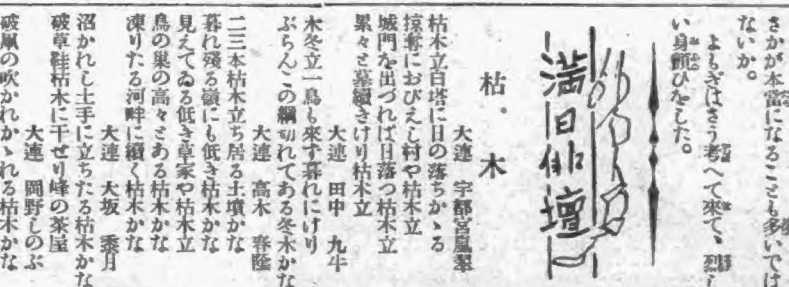 さかが本當になることも多いでは
ないか。
よもぎはさう考へて來て、烈し
い身顫ひをした。
満日俳壇
枯木
大連 宇都宮嵐翠
枯木立白塔に日の落ちかゝる
掠奪におびえし村や枯木立
城門を出づれば日落つ枯木立
累々と墓續きけり枯木立
大連 田中 九牛
木冬立一鳥も來ず暮れにけり
ぶらんこの綱切れてある冬木かな
大連 高木 春蔭
二三本枯木立ち居る土墳かな
暮れ殘る嶺にも低き枯木かな
見えてゐる低き草家や枯木立
鳥の巢の高々とある枯木かな
凍りたる河畔に續く枯木かな
大連 大坂 月
沼かれし土手に立ちたる枯木かな
破草鞋枯木に干せり峰の茶屋
大連 岡野しのぶ
破凧の吹かれかゝれる枯木かな